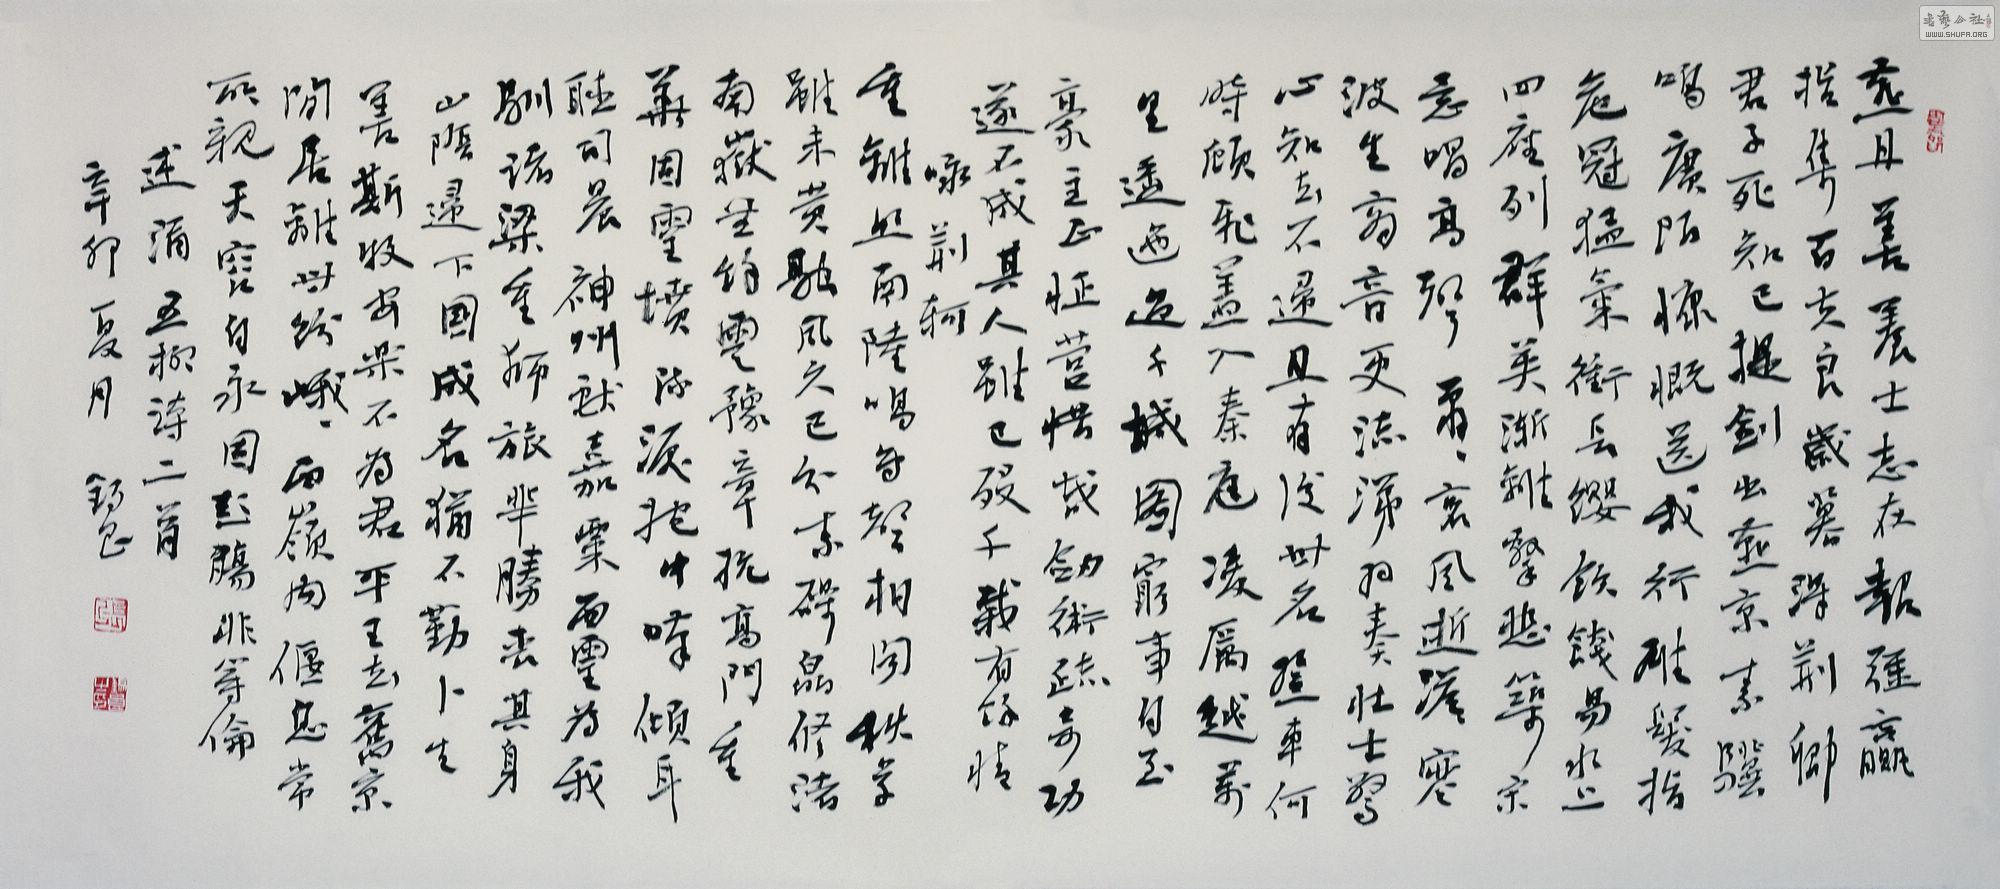 燕丹善養士志在報強嬴
招集百夫良歲暮得荆卿
君子死知己提劍出燕京素驥
鳴廣陌慷慨送我行雄髮指
危冠猛氣衝長纓飲餞易水上
四座列群英漸離擊悲筑宋
意唱高聲蕭〻哀風逝澹寒
波生商音更流涕羽奏壯士驚
心知去不歸且有後世名登車何
時顧飛蓋入秦庭凌厲越萬
里逶迤過千城圖窮事自至
豪主正怔營惜哉劍術疏奇功
遂不成其人雖已歿千載有餘情
咏荆軻
重離照南陸鳴鳥聲相聞秋草
雖未黄融風久已分素礫皛修渚
南嶽無餘雲豫章抗高門重
華固靈墳流淚抱中嘆傾耳
聽司晨神州獻嘉粟西靈為我
馴諸梁董師旅芈勝喪其身
山陽歸下國成名猶不勤卜生
善斯牧安樂不為君平王去舊京
閒居離世紛峨〻西嶺内偃息常
所親天容自永固彭殤非等倫
述酒 五柳詩二首
辛卯夏月 錫良
书艺公社
WWW.SHUFA.ORG